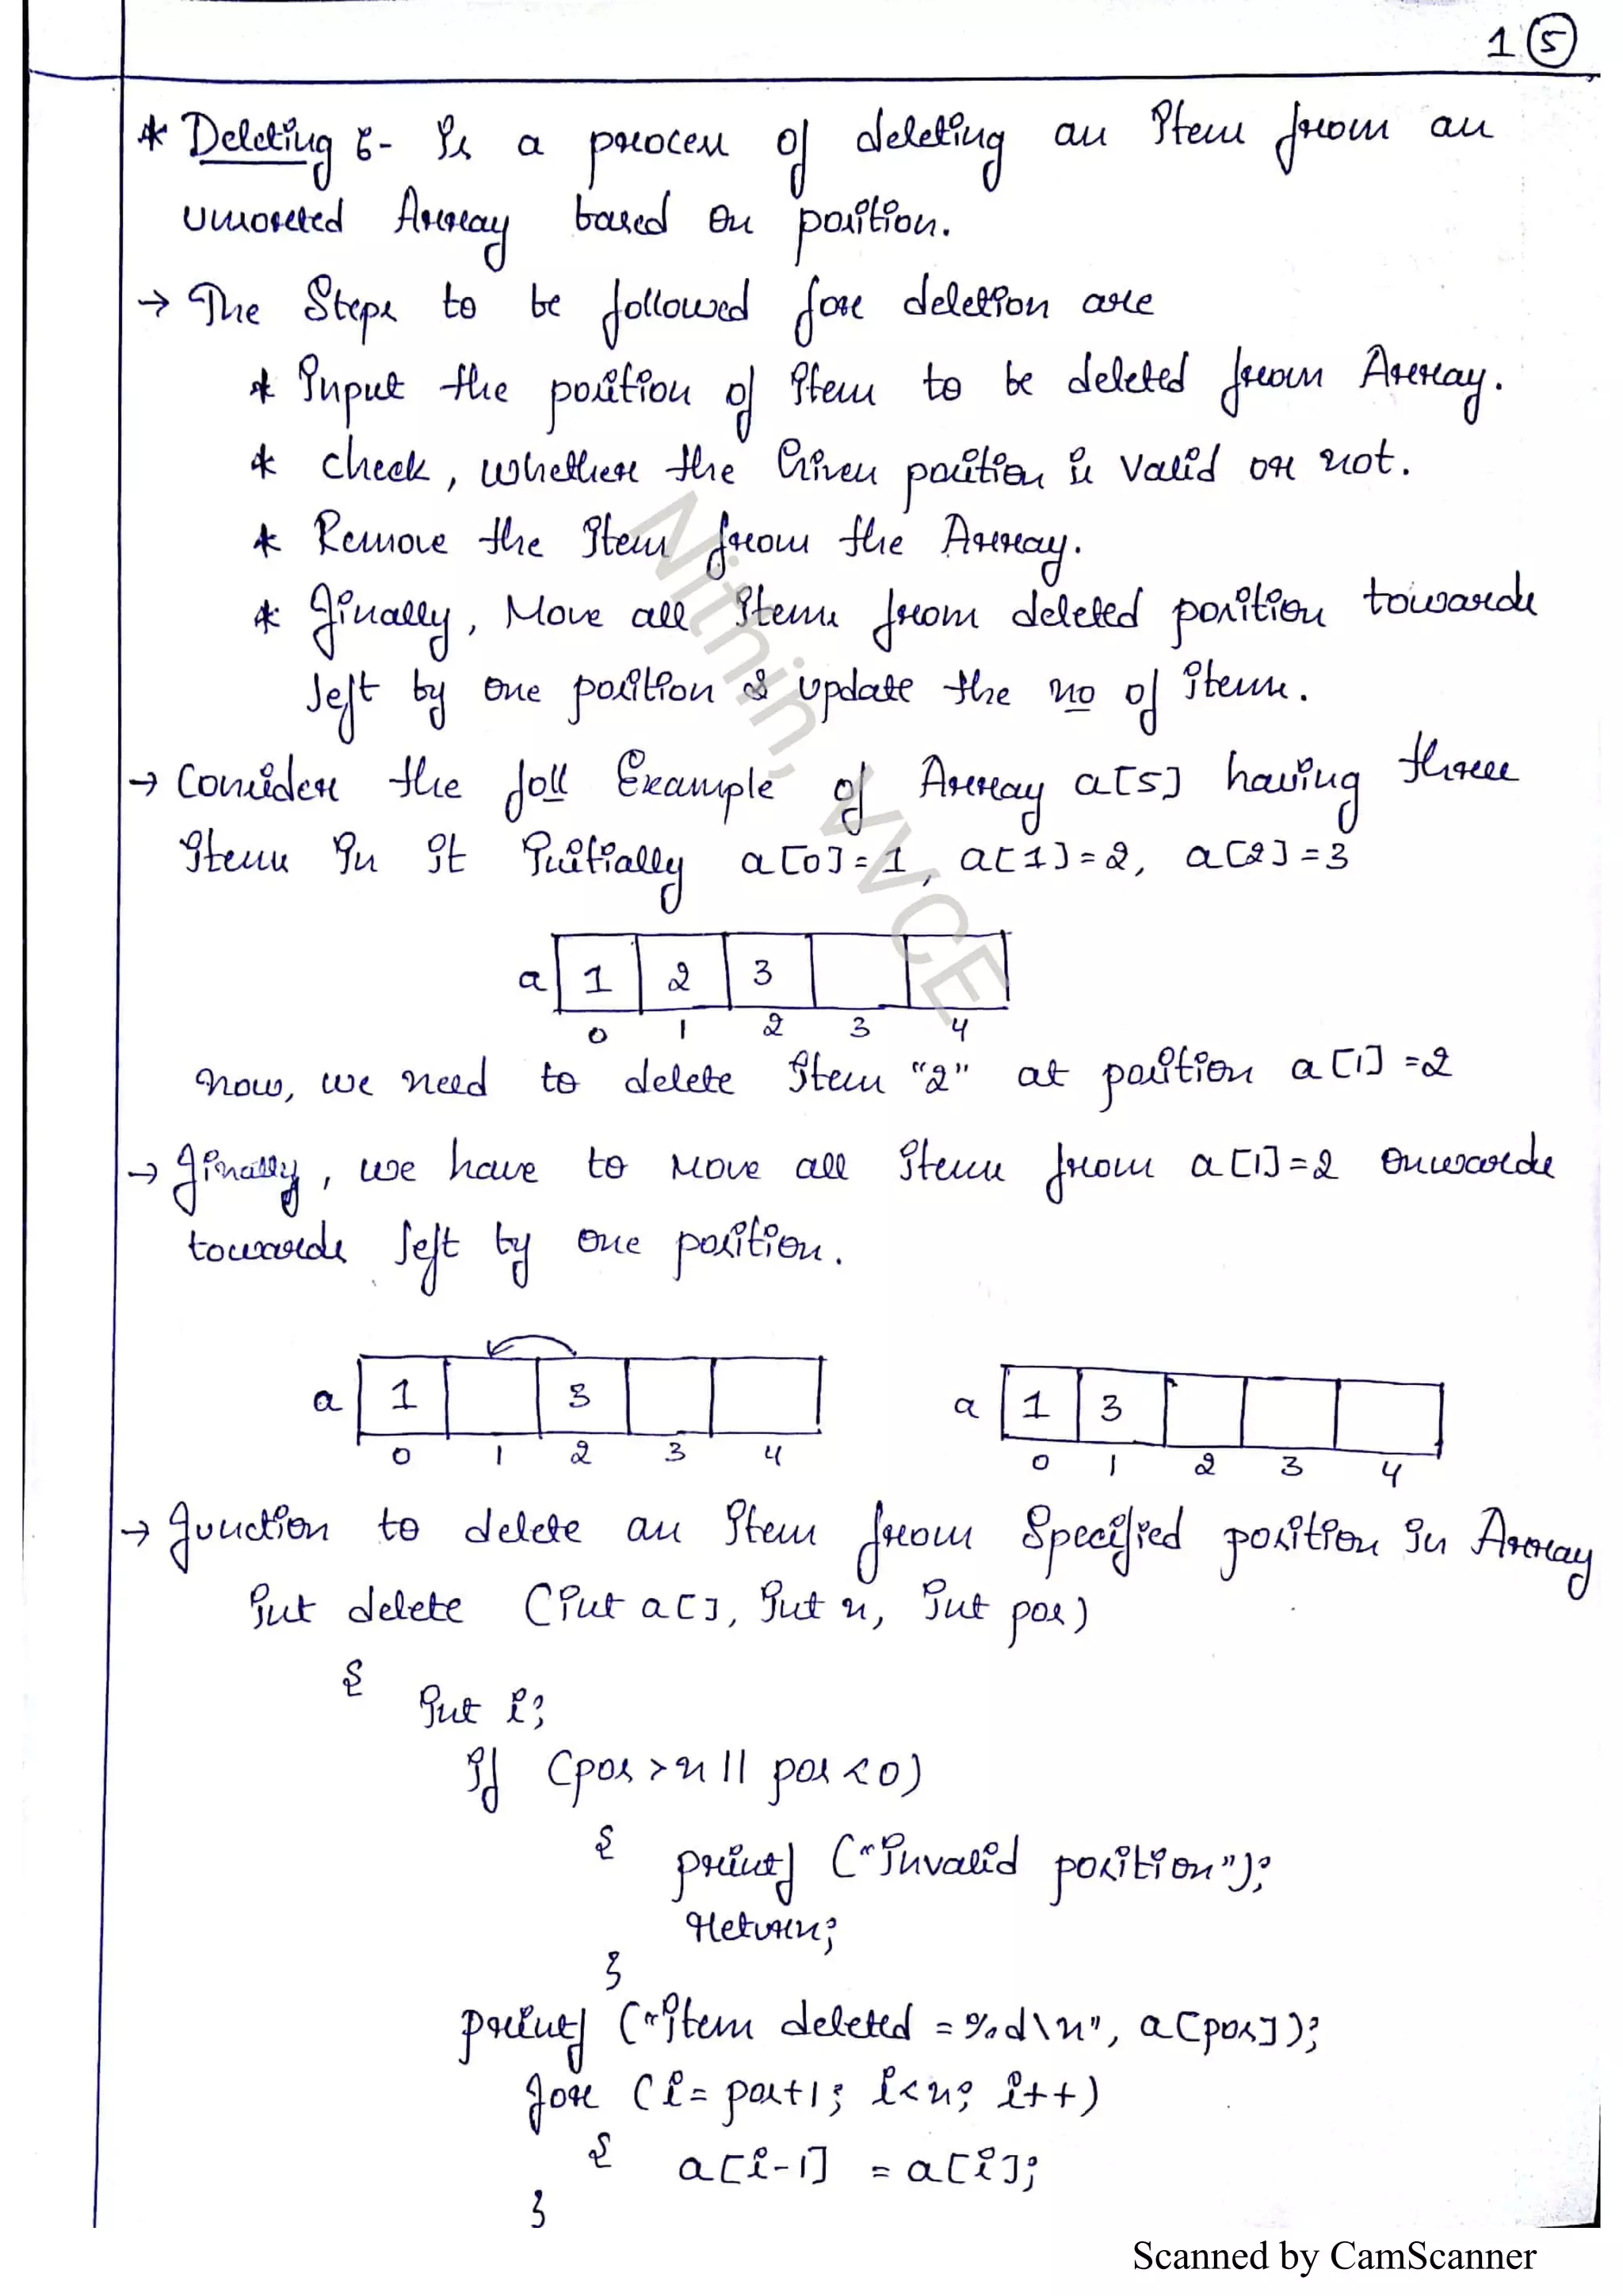 1 5
* Deleting :- Is a process of deleting an Item from an
unsorted Array based on position.
→ The Steps to be followed for deletion are
* Input the position of Item to be deleted from Array.
* check, whether the Given position is valid or not.
* Remove the Item from the Array.
* Finally, Move all Items from deleted position towards
left by one position & update the no of items.
→ Consider the foll Example of Array a[5] having three
Items In It Initially a[0]=1, a[1]=2, a[2]=3
a 1 2 3
0 1 2 3 4
Now, we need to delete Item "2" at position a[1]=2
→ Finally, we have to Move all Items from a[1]=2 onwards
towards left by one position.
a 1 3 a 1 3
0 1 2 3 4 0 1 2 3 4
→ Function to delete an Item from Specified position In Array
Int delete (Int a[], Int n, Int pos)
{
Int i;
If (pos > n || pos < 0)
{
printf ("Invalid position");
return;
}
printf ("Item deleted = %d\n", a[pos]);
for (i= pos+1; i<n; i++)
{ a[i-1] = a[i];
}
Nithin, VVCE
Scanned by CamScanner